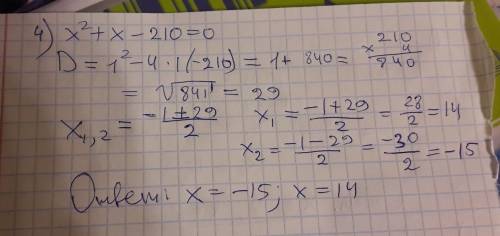 4) x² + x - 210 = 0
D = 1² - 4 · 1 (-210) = 1 + 840 =
210
× 4
840
= √841 = 29
x₁,₂ = (-1 ± 29)/2
x₁ = (-1 + 29)/2 = 28/2 = 14
x₂ = (-1 - 29)/2 = -30/2 = -15
Ответ: x = -15; x = 14